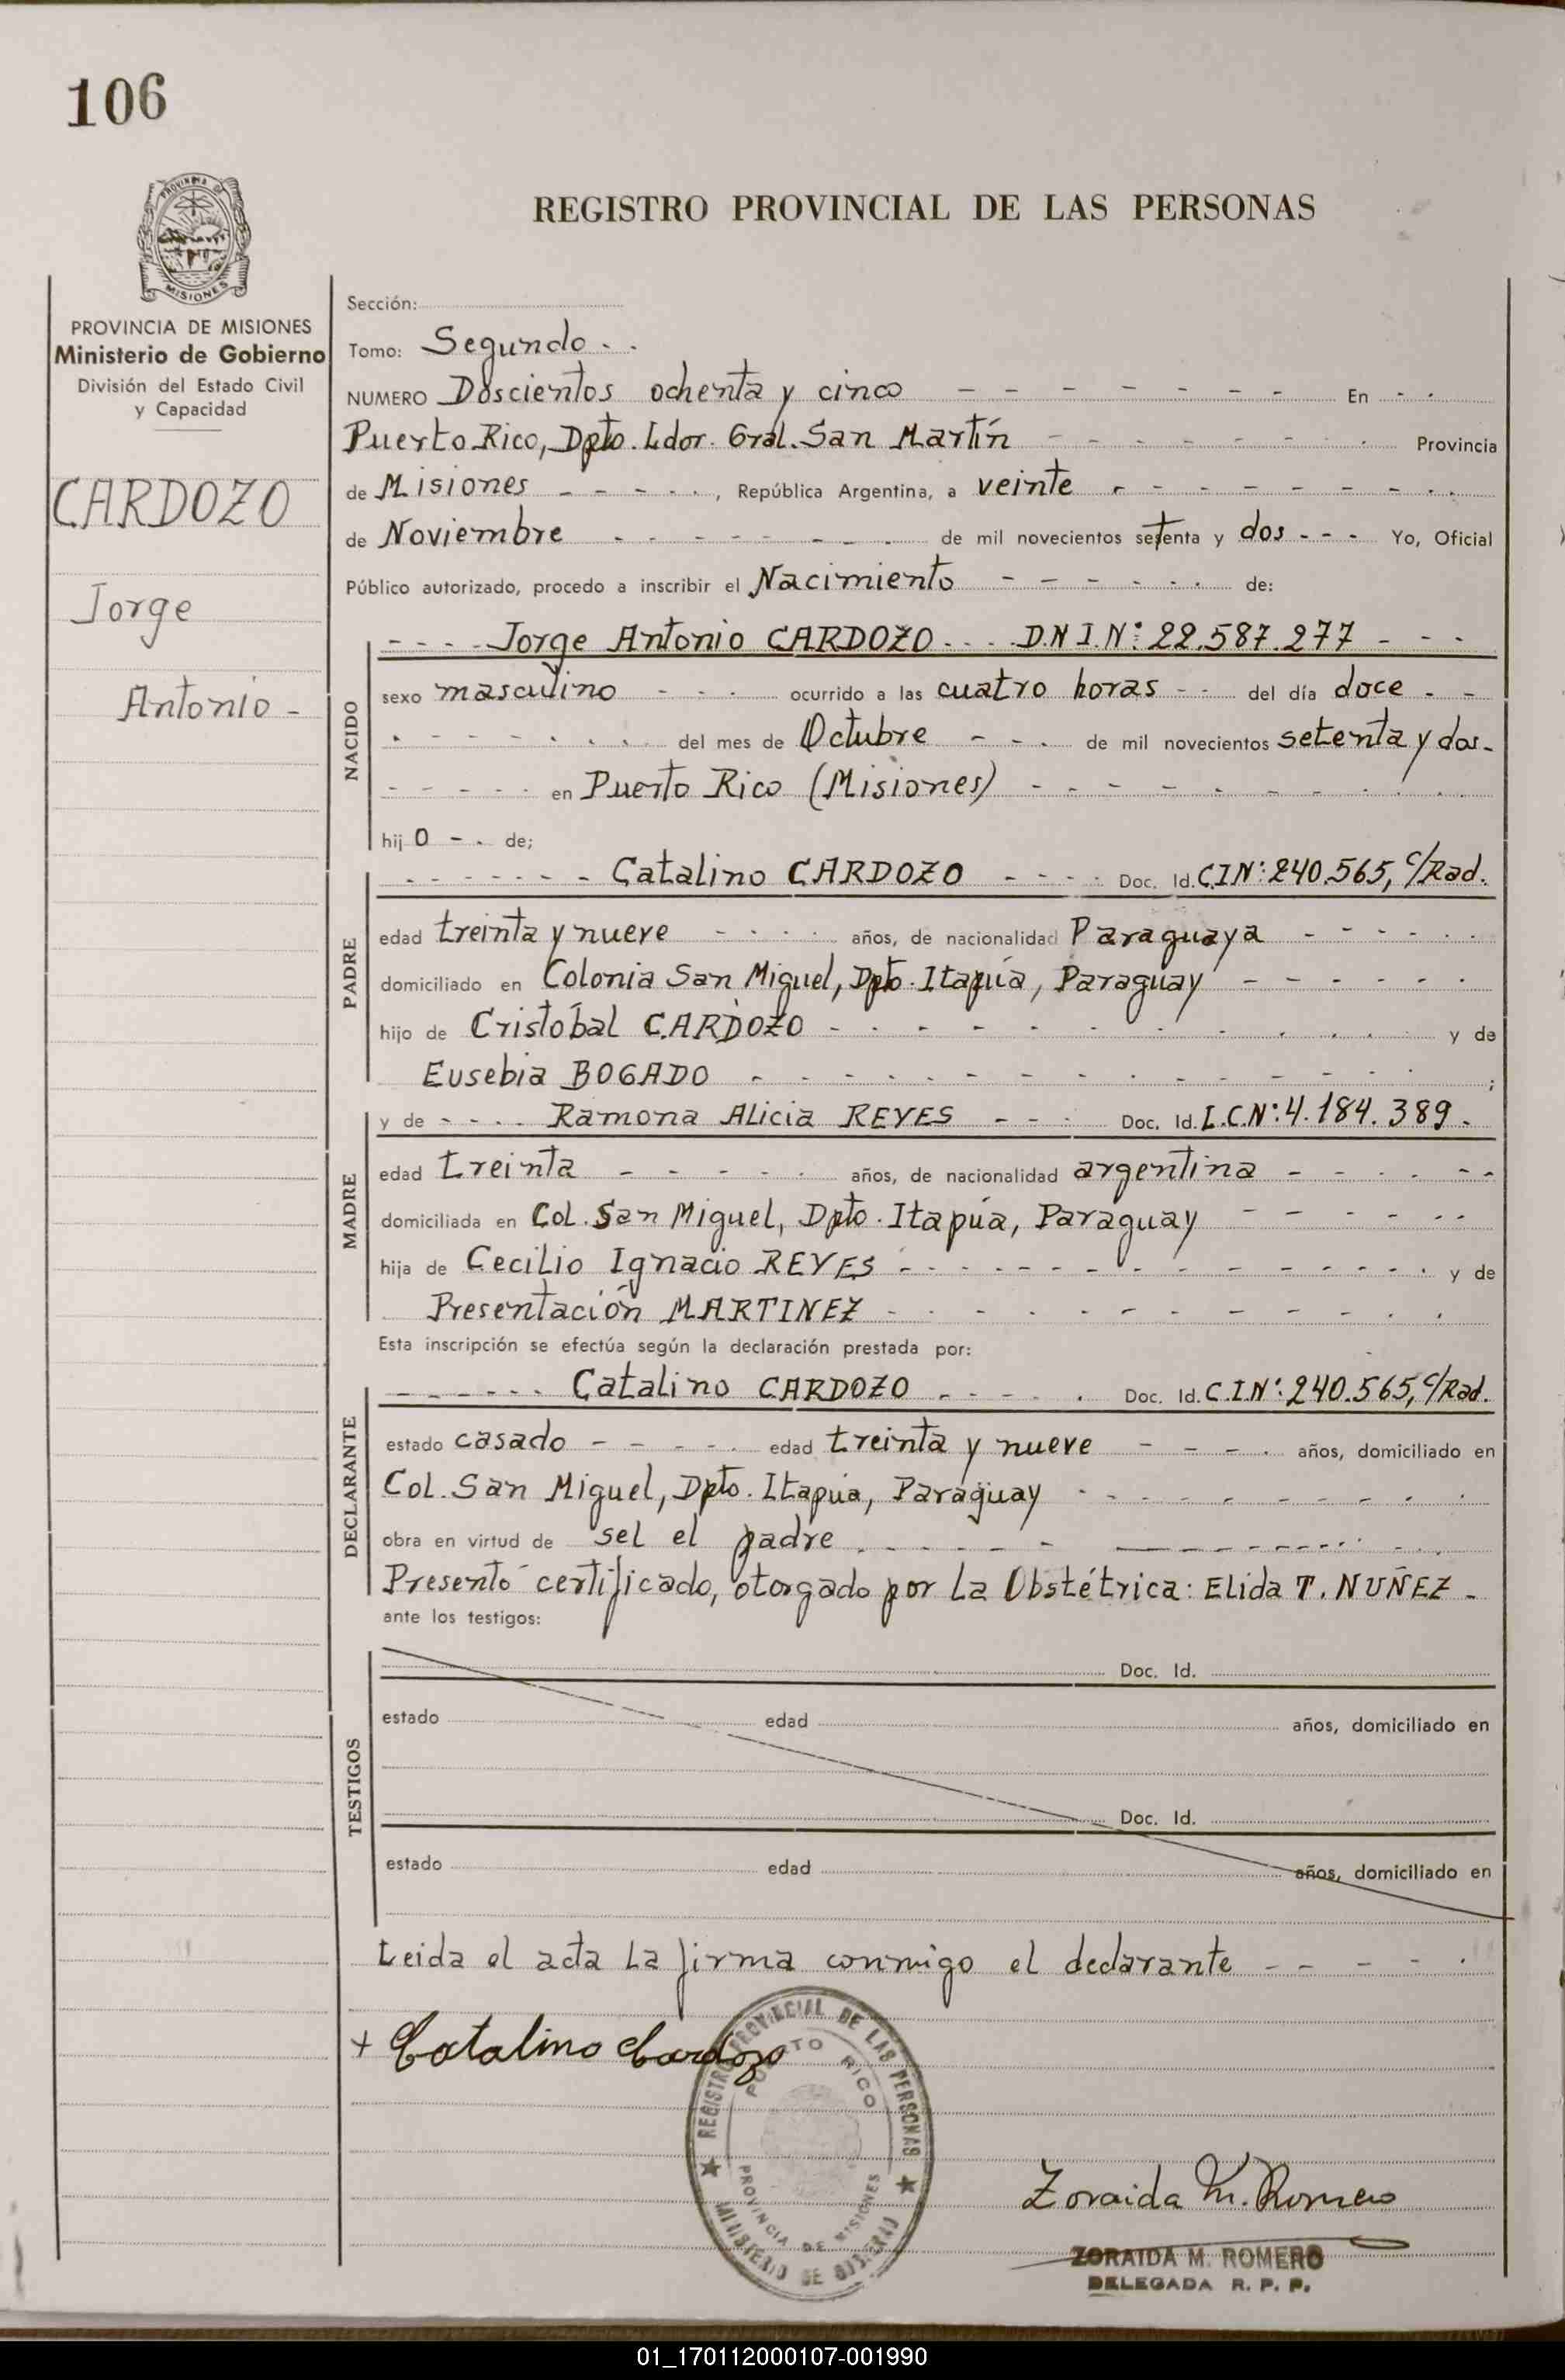 106
PROVINCIA DE
MISIONES
PROVINCIA DE MISIONES
Ministerio de Gobierno
División del Estado Civil
y Capacidad
CARDOZO
Jorge
Antonio -
REGISTRO PROVINCIAL DE LAS PERSONAS
Sección:
Tomo: Segundo
NUMERO Doscientos ochenta y cinco En
Puerto Rico, Dpto. Ldor. Gral. San Martín Provincia
de Misiones, República Argentina, a veinte
de Noviembre de mil novecientos setenta y dos Yo, Oficial
Público autorizado, procedo a inscribir el Nacimiento de:
NACIDO
Jorge Antonio CARDOZO D.N.I.N°: 22.587.277
sexo masculino ocurrido a las cuatro horas del día doce
del mes de Octubre de mil novecientos setenta y dos
en Puerto Rico (Misiones)
hij o de;
PADRE
Catalino CARDOZO Doc. Id. C.I.N°: 240.565, c/Rad.
edad treinta y nueve años, de nacionalidad Paraguaya
domiciliado en Colonia San Miguel, Dpto. Itapúa, Paraguay
hijo de Cristóbal CARDOZO y de
Eusebia BOGADO ;
MADRE
y de Ramona Alicia REYES Doc. Id. L.C.N°: 4.184.389
edad treinta años, de nacionalidad argentina
domiciliada en Col. San Miguel, Dpto. Itapúa, Paraguay
hija de Cecilio Ignacio REYES y de
Presentación MARTINEZ
Esta inscripción se efectúa según la declaración prestada por:
DECLARANTE
Catalino CARDOZO Doc. Id. C.I.N°: 240.565, c/Rad.
estado casado edad treinta y nueve años, domiciliado en
Col. San Miguel, Dpto. Itapúa, Paraguay
obra en virtud de sel el padre
Presentó certificado, otorgado por la Obstétrica: Elida T. NUÑEZ
ante los testigos:
TESTIGOS
Doc. Id.
estado edad años, domiciliado en
Doc. Id.
estado edad años, domiciliado en
Leida el acta la firma conmigo el declarante
+ Catalino Cardozo
REGISTRO PROVINCIAL DE LAS PERSONAS
PUERTO RICO
PROVINCIA DE MISIONES
MINISTERIO DE GOBIERNO
Zoraida M. Romero
ZORAIDA M. ROMERO
DELEGADA R. P. P.
01_170112000107-001990